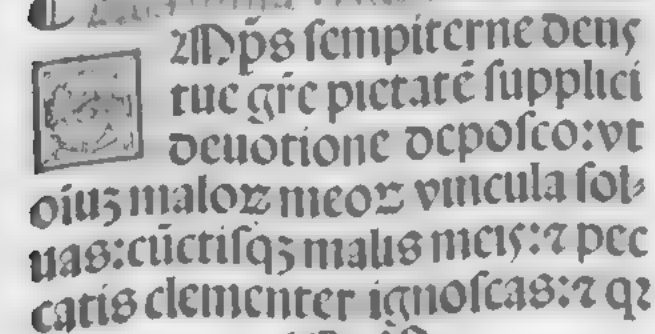 Mp̄s sempiterne deus
tue gr̄e pietatē supplici
deuotione deposco: vt
oiuꝫ maloꝝ meoꝝ vincula sol⸗
uas: cūctisqꝫ malis meis: ⁊ pec
catis clementer ignoscas: ⁊ qꝛ